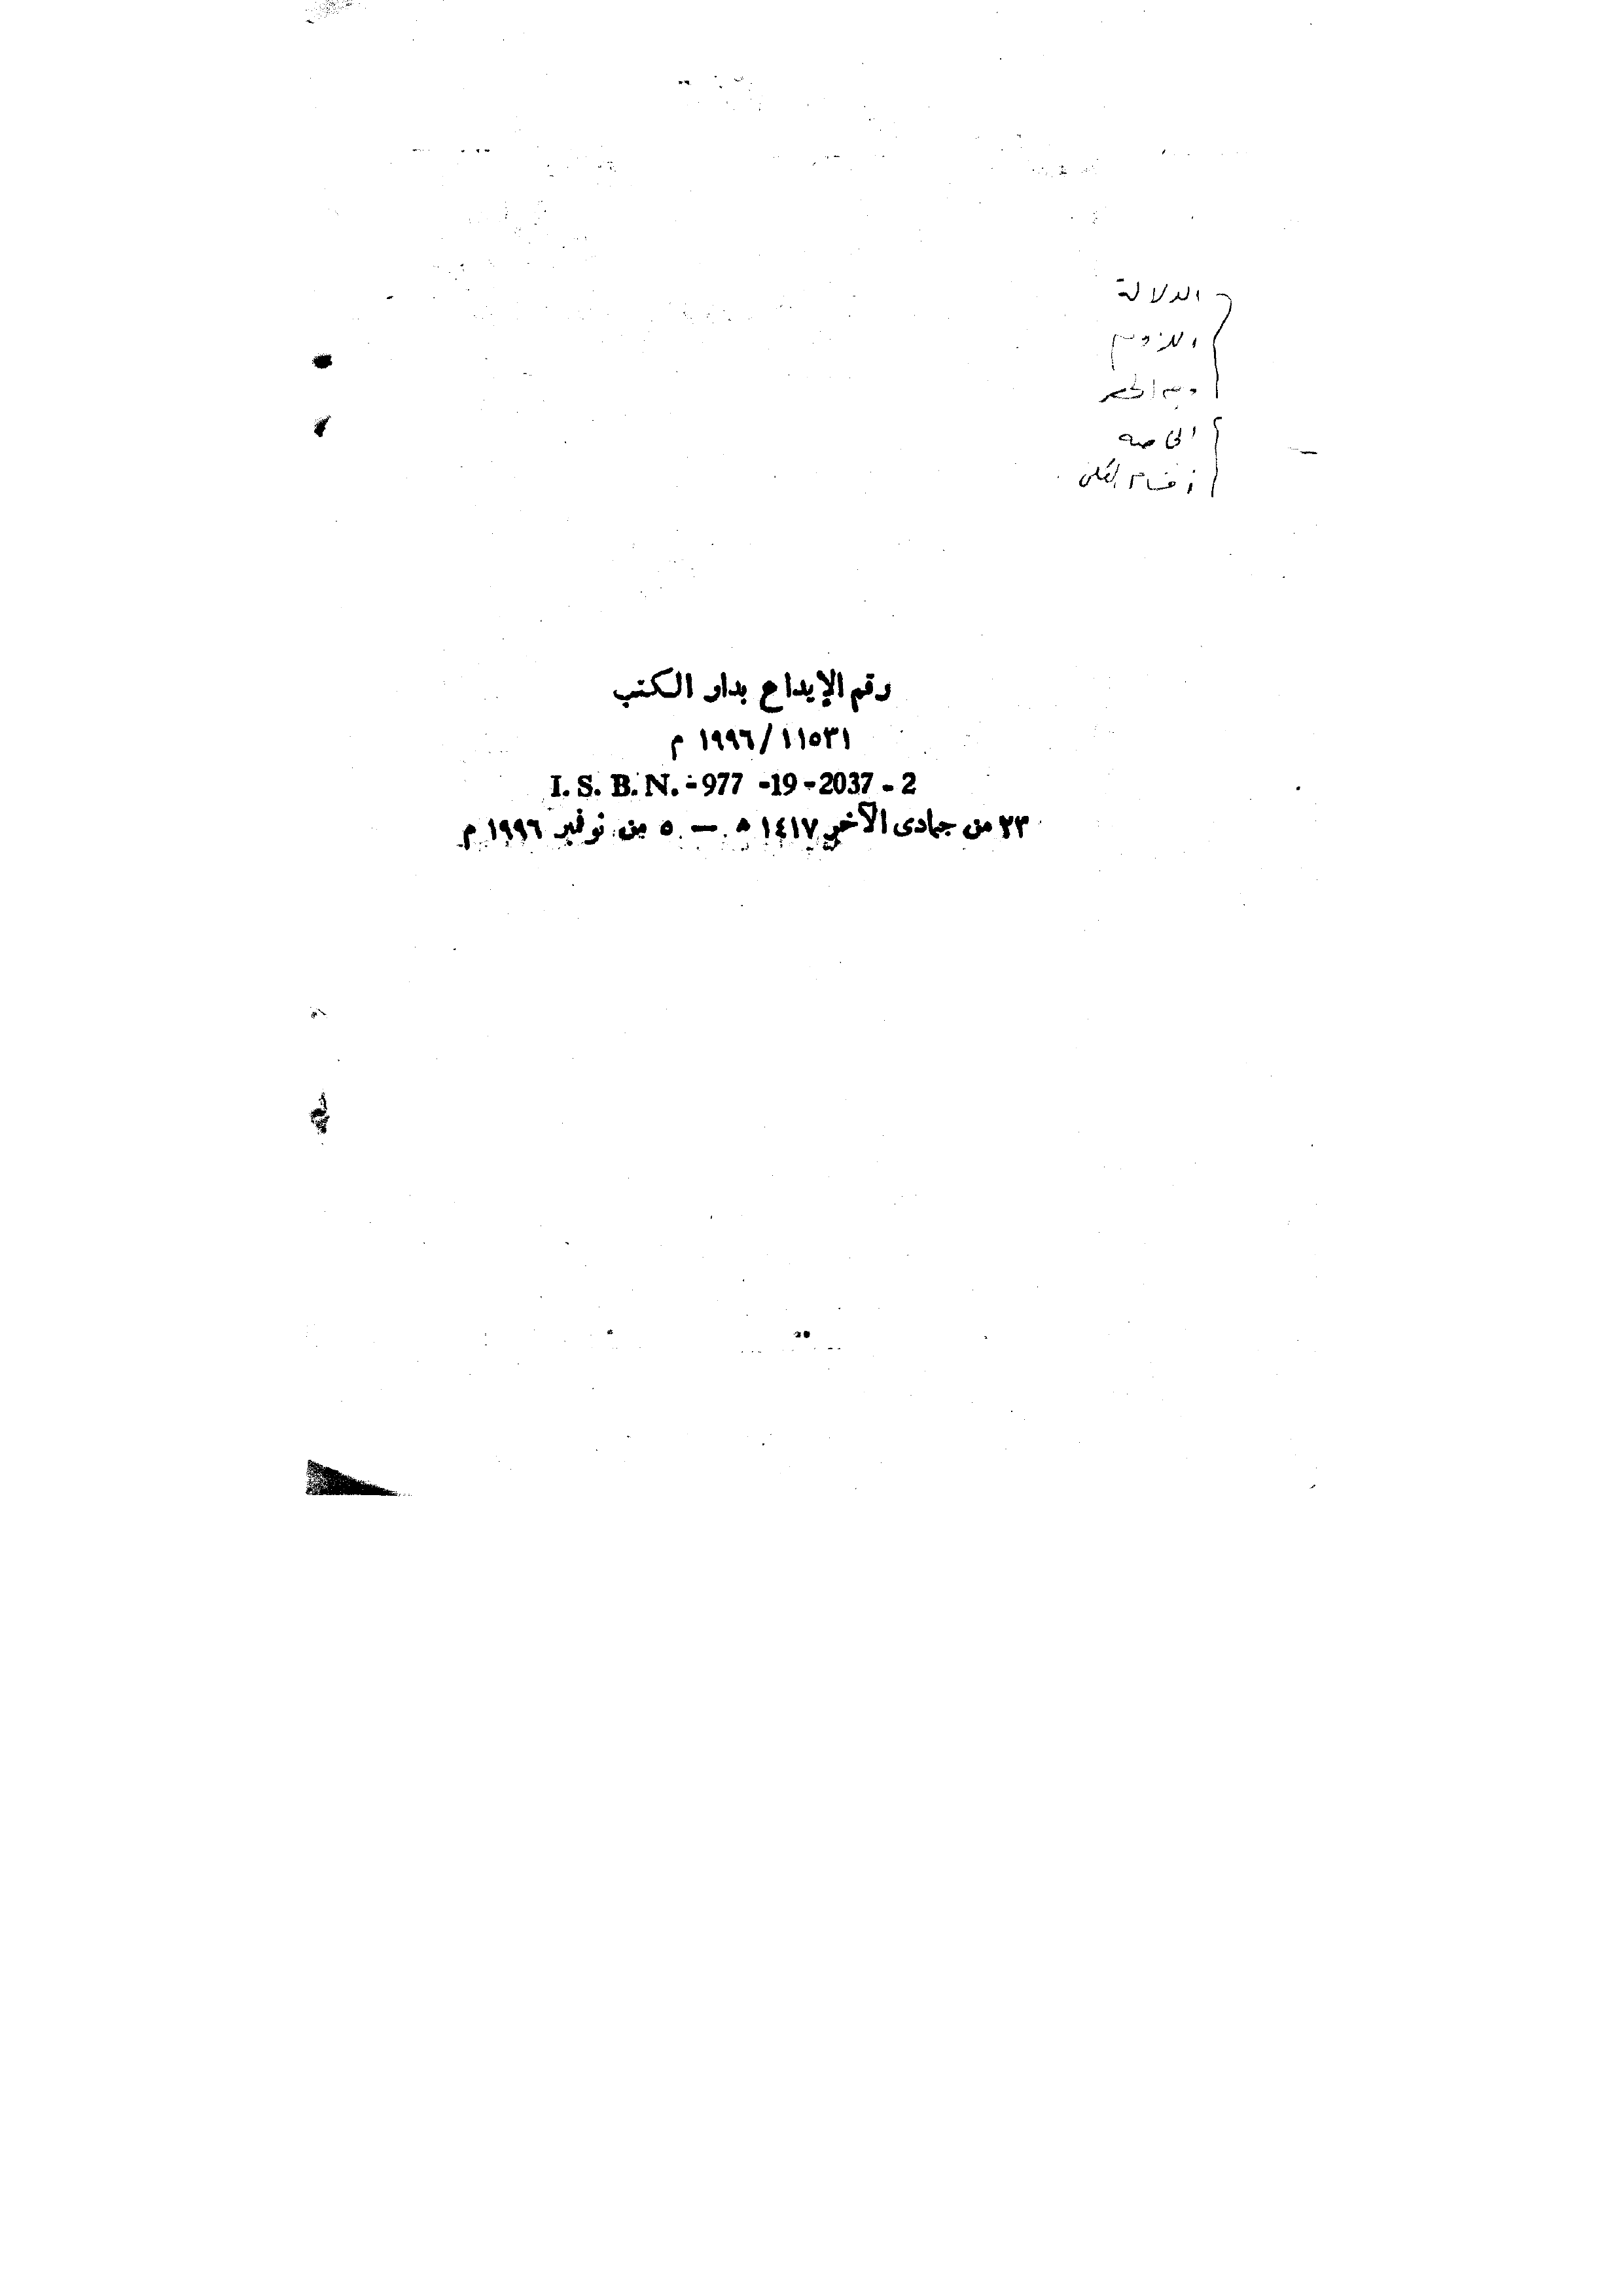 الدلالة
اللزوم
الخاصه
أقسام الكلي
رقم الإيداع بدار الكتب
١١٥٣١/ ١٩٩٦ م
I. S. B. N. - 977 -19 -2037 - 2
٢٣ من جمادى الآخر ١٤١٧ ه — ٥ من نوفمبر ١٩٩٦ م